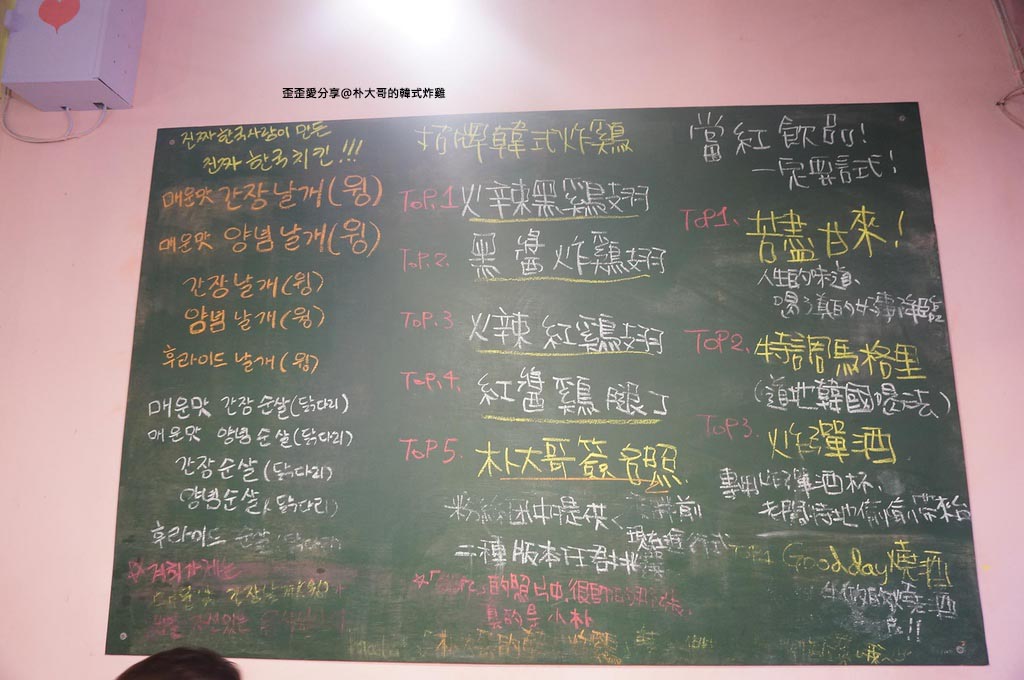 歪歪愛分享@朴大哥的韓式炸雞
진짜 한국사람이 만든
진짜 한국치킨!!!
매운맛 간장날개(윙)
매운맛 양념날개(윙)
간장날개(윙)
양념날개(윙)
후라이드 날개(윙)
매운맛 간장순살(닭다리)
매운맛 양념순살(닭다리)
간장순살(닭다리)
양념순살(닭다리)
후라이드 순살
招牌韓式炸鷄
TOP.1 火辣黑鷄翅
TOP.2. 黑醬炸鷄翅
TOP.3 火辣紅鷄翅
TOP.4. 紅醬鷄腿丁
TOP5. 朴大哥簽名照
粉絲团中提供
二種版本任君挑
真的是小朴
當紅飲品!
一定要試!
TOP1. 苦盡甘來!
人生的味道、
喝了真的好事降臨
TOP2. 特調馬格里
(道地韓國喝法)
TOP3. 炸彈酒
專用炸彈酒杯、
老闆特地偷偷帶來台
Goodday燒酒
燒酒